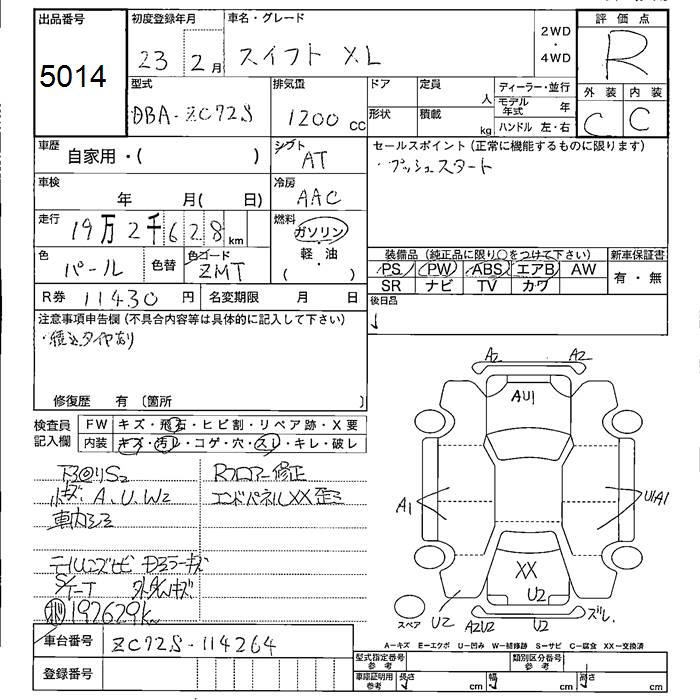 出品番号
5014
初度登録年月
23 2月
車名・グレード
スイフト XL
2WD
・
4WD
評価点
R
型式
DBA-ZC72S
排気量
1200 cc
ドア
形状
定員
人
積載
kg
ディーラー・並行
モデル年式 年
ハンドル 左・右
外装 内装
C C
車歴
自家用・( )
シフト
AT
セールスポイント(正常に機能するものに限ります)
・プッシュスタート
車検
年 月( 日)
冷房
AAC
走行
19万2千628km
燃料
ガソリン
・
軽・油
( )
色
パール
色替
色コード
ZMT
装備品(純正品に限り○をつけて下さい)
新車保証書
PS PW ABS エアB AW
SR ナビ TV カワ
有・無
R券 11430円
名変期限 月 日
後日品
注意事項申告欄(不具合内容等は具体的に記入して下さい)
・積込タイヤあり
修復歴 有〔箇所 〕
検査員記入欄
FW キズ・飛石・ヒビ割・リペア跡・X要
内装 キズ・汚レ・コゲ・穴・スレ・キレ・破レ
小キズ A、U、W2
車内シミ
Rフロアー修正
エンドパネルXX歪ミ
192629km
A2 A2
AU1
A1
U1A1
XX
U2
U2
A2U2
U2
ズレ
スペア
A-キズ E-エクボ U-凹み W-補修跡 S-サビ C-腐食 XX-交換済
車台番号 ZC72S-114264
登録番号
型式指定番号参考
類別区分番号参考
車庫証明用参考
長さ cm
幅 cm
高さ cm